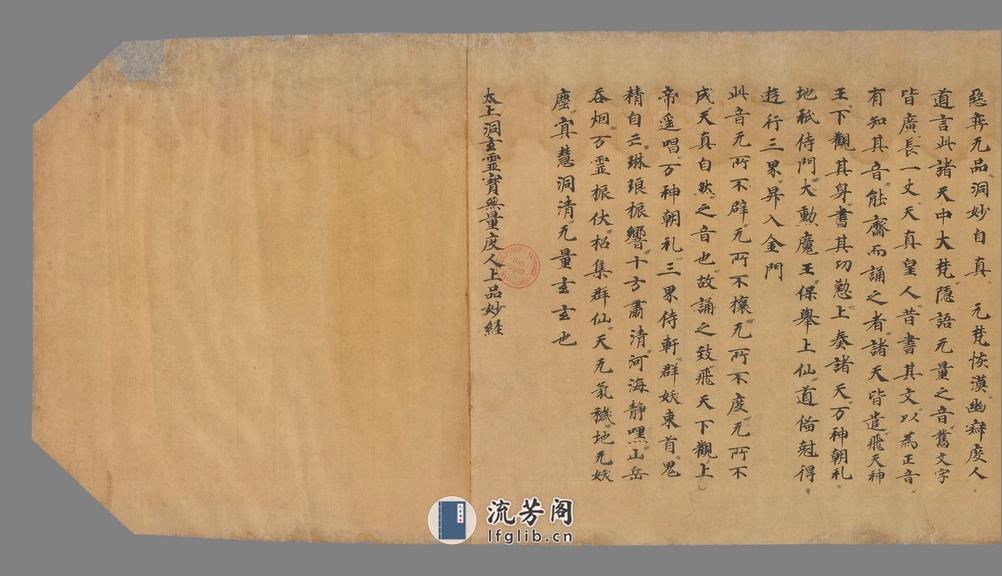 惡弈无品洞妙自真　元梵恢漠幽寂度人
道言此諸天中大梵隱語无量之音舊文字
皆廣長一丈天真皇人昔書其文以為正音
有知其音能齋而誦之者諸天皆遣飛天神
王下觀其身書其功懃上奏諸天万神朝礼
地祇侍門大勳魔王保舉上仙道俻剋得
遊行三界昇入金門
此音无所不辟无所不攘无所不度无所不
成天真自然之音也故誦之致飛天下觀上
帝遥唱万神朝礼三界侍軒群妖束首鬼
精自亡琳琅振響十方肅清河海靜嘿山岳
吞烟万霊振伏招集群仙天无氣穢地无妖
塵冥慧洞清无量玄玄也
太上洞玄靈寳無量度人上品妙経
流芳阁
lfglib.cn